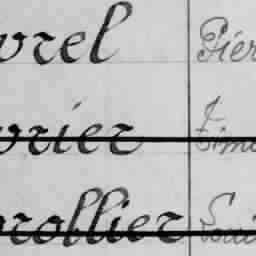 vrel Pier
vrier
vrollier Loui